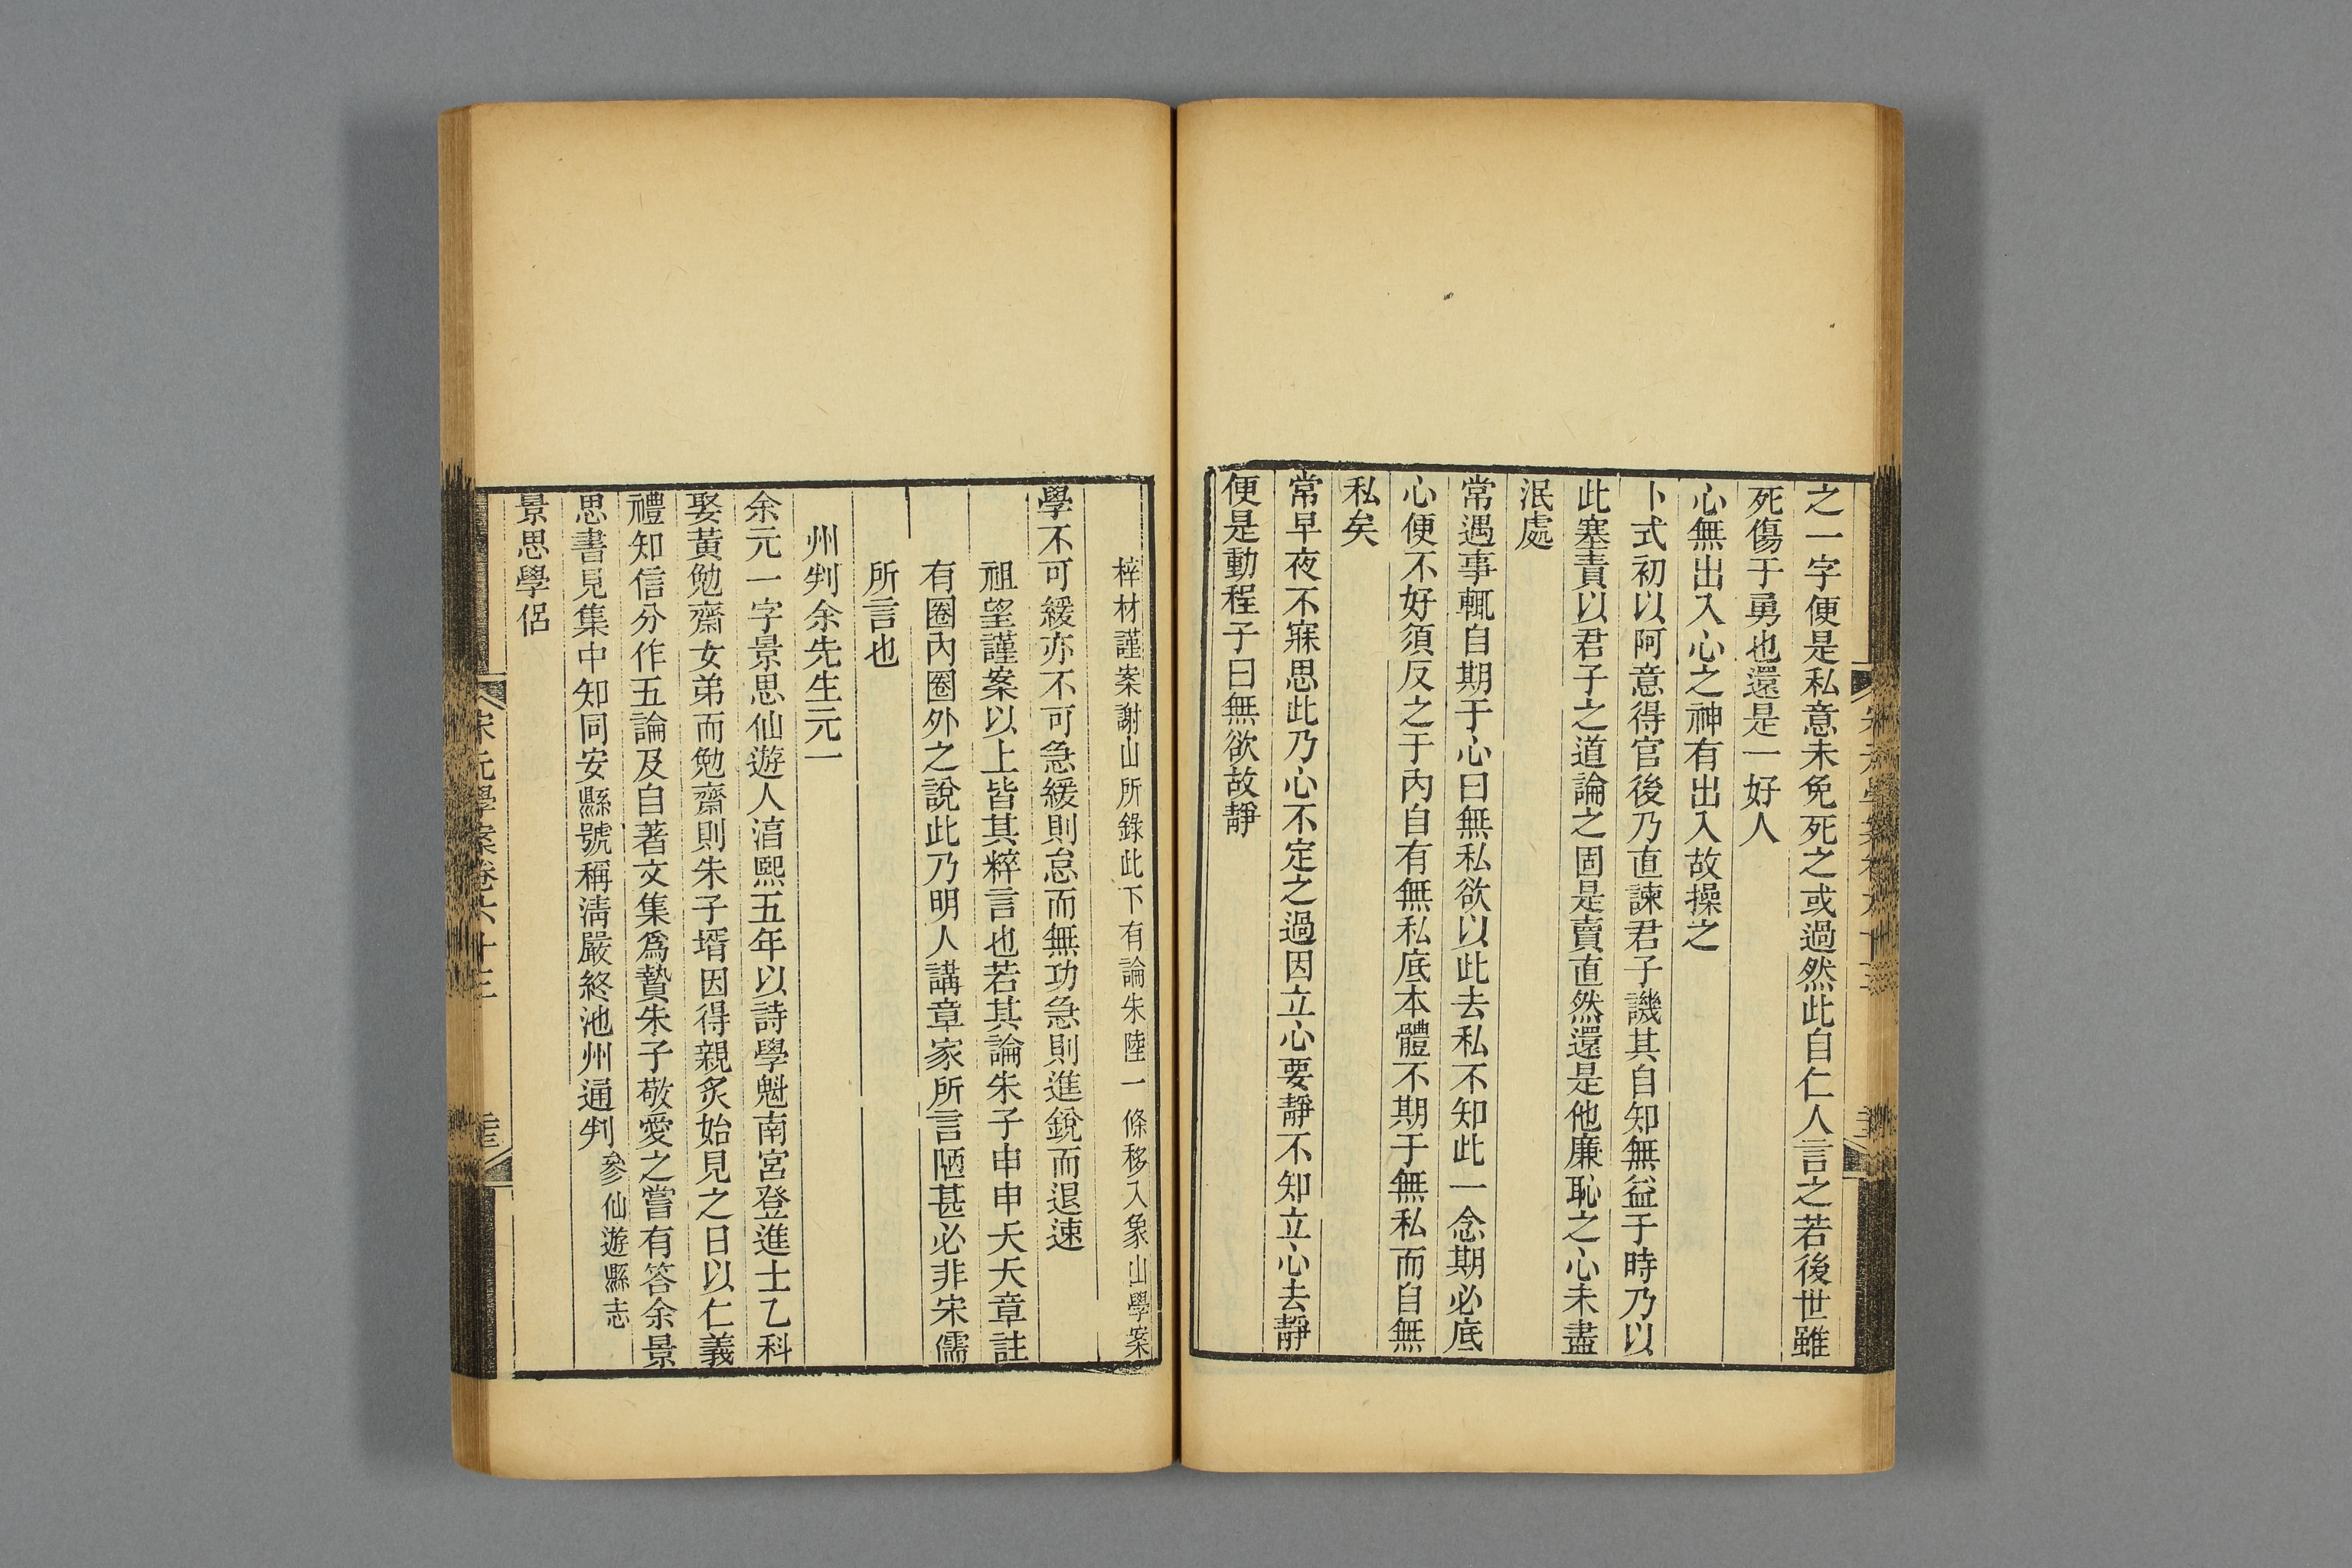 之一字便是私意未免死之或過然此自仁人言之若後世雖
死傷于勇也還是一好人
心無出入心之神有出入故操之
卜式初以阿意得官後乃直諫君子譏其自知無益于時乃以
此塞責以君子之道論之固是賣直然還是他廉恥之心未盡
泯處
常遇事輒自期于心曰無私欲以此去私不知此一念期必底
心便不好須反之于內自有無私底本體不期于無私而自無
私矣
常早夜不寐思此乃心不定之過因立心要靜不知立心去靜
便是動程子曰無欲故靜
梓材謹案謝山所錄此下有論朱陸一條移入象山學案
學不可緩亦不可急緩則怠而無功急則進銳而退速
祖望謹案以上皆其粹言也若其論朱子申申夭夭章註
有圈內圈外之說此乃明人講章家所言陋甚必非宋儒
所言也
州判余先生元一
余元一字景思仙遊人淳熙五年以詩學魁南宮登進士乙科
娶黃勉齋女弟而勉齋則朱子壻因得親炙始見之日以仁義
禮知信分作五論及自著文集爲贄朱子敬愛之嘗有答余景
思書見集中知同安縣號稱淸嚴終池州通判參仙遊縣志
景思學侶
宋元學案卷六十三